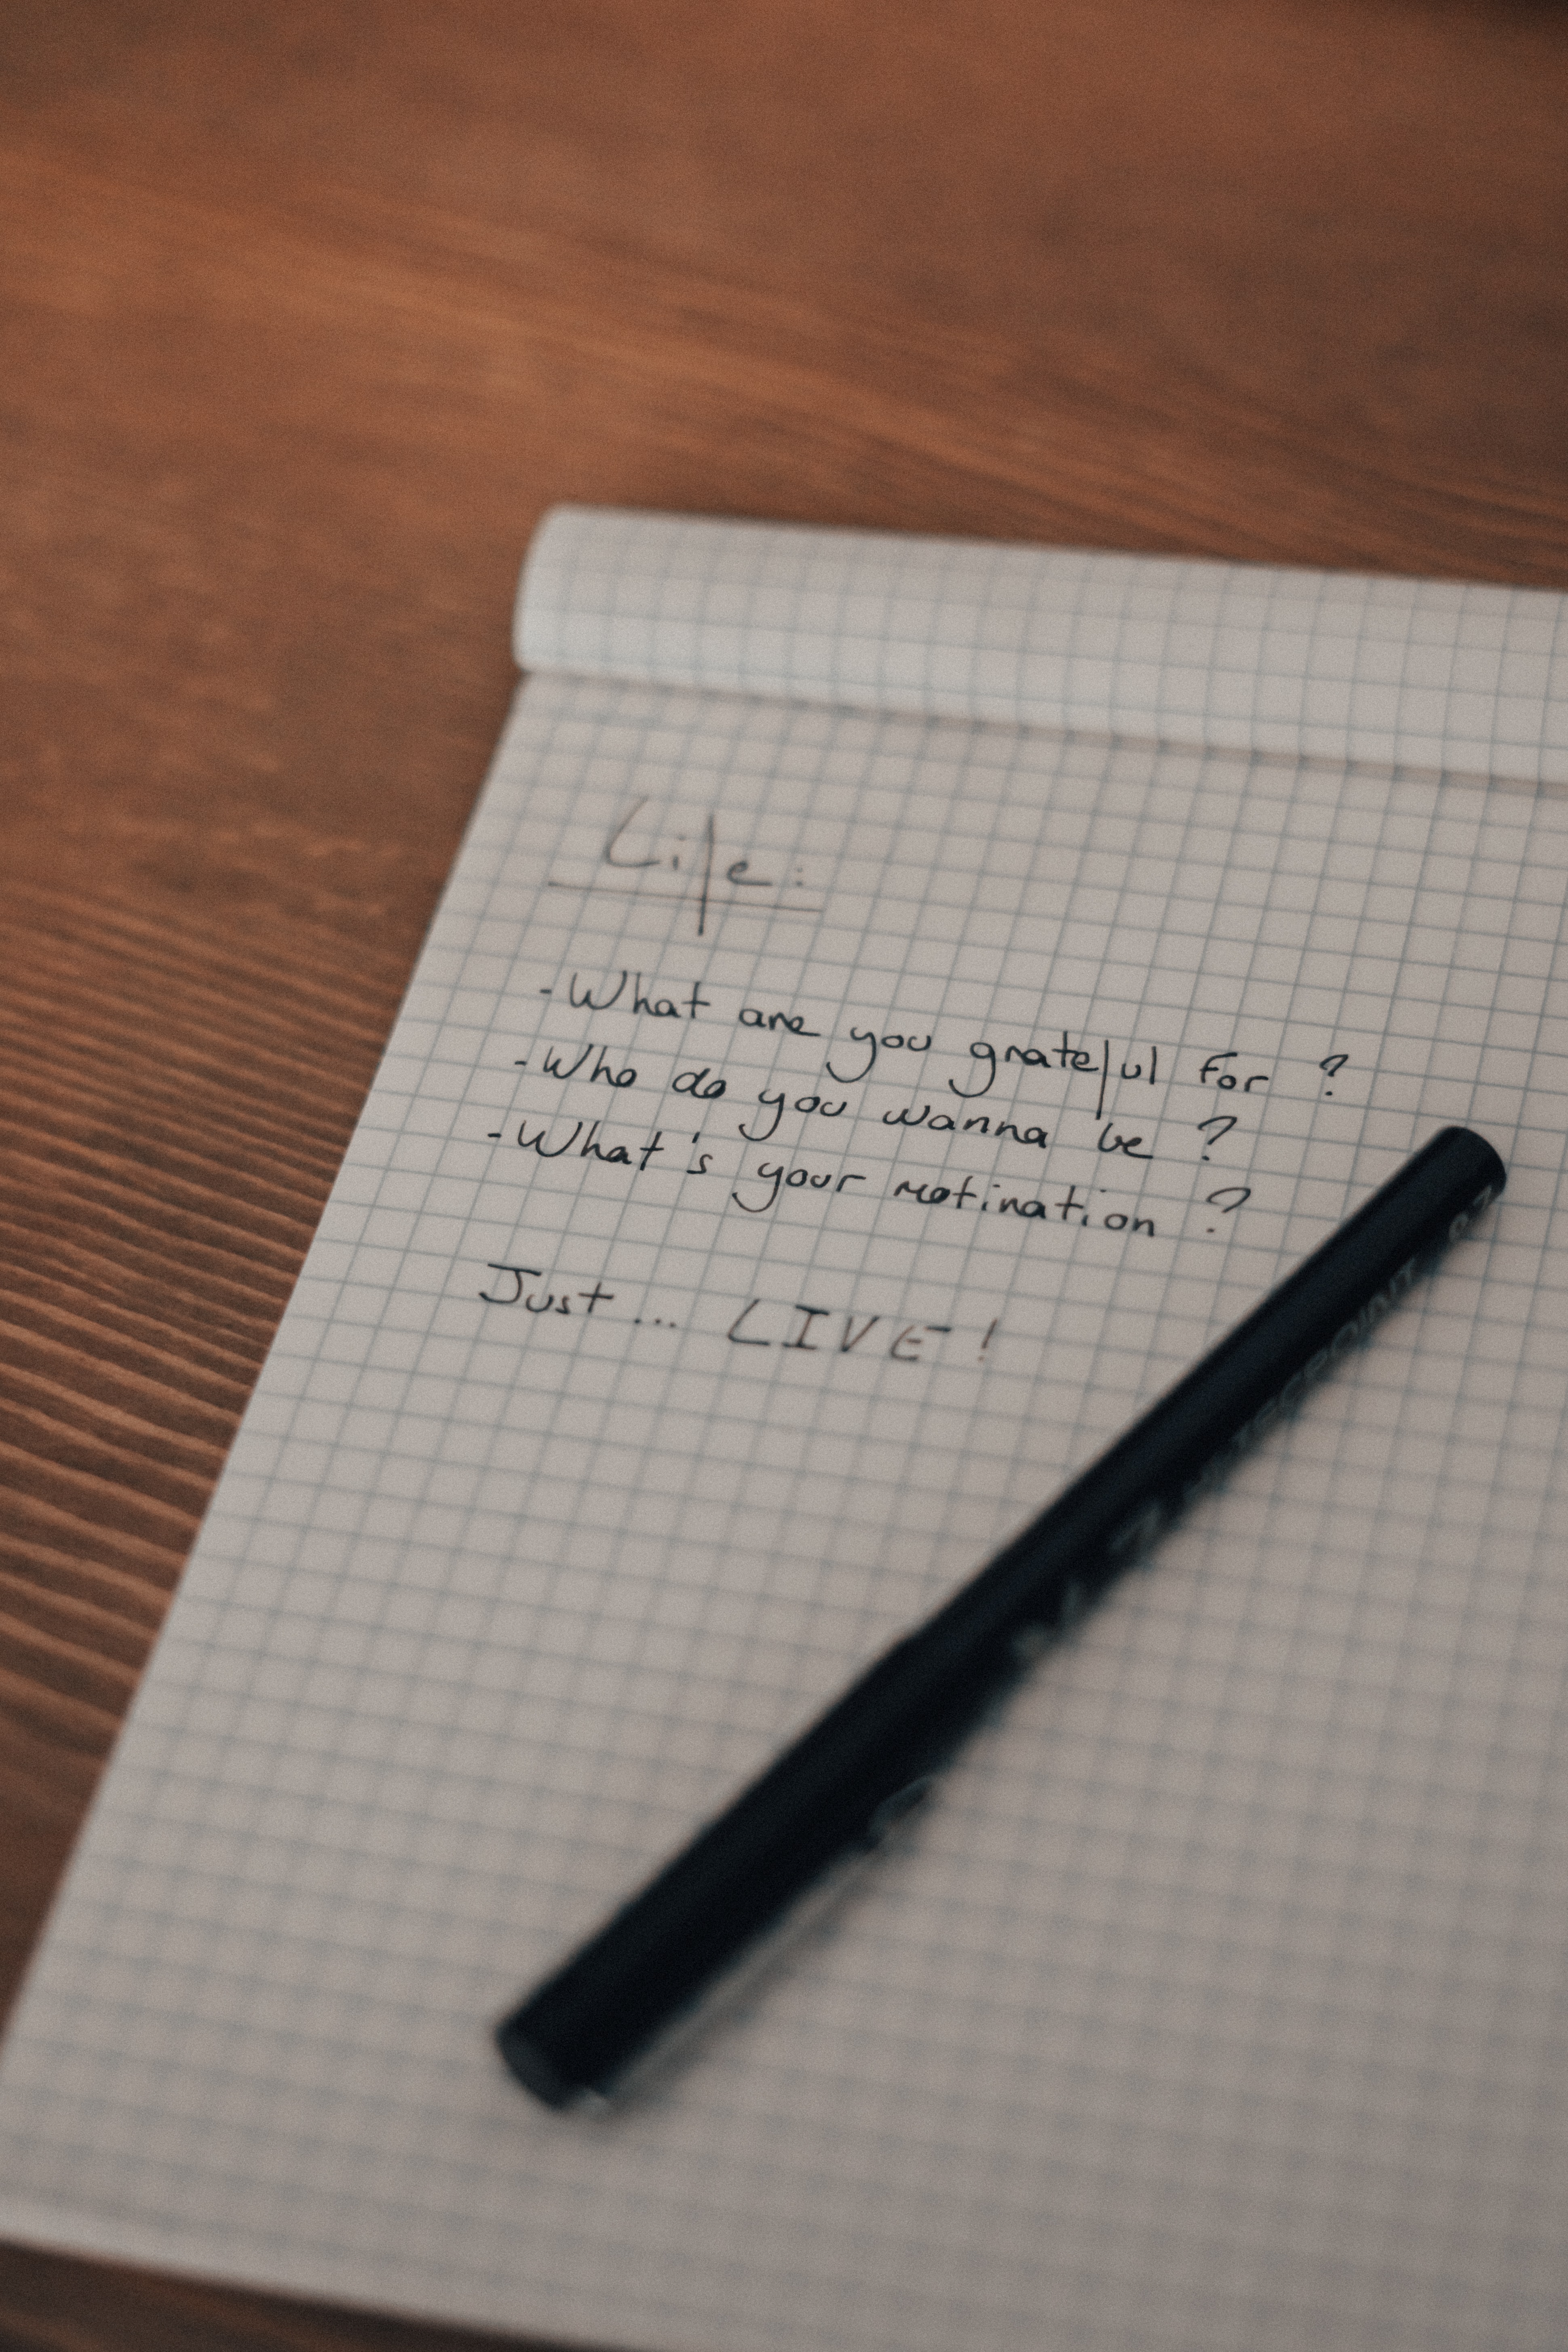 Life:
- What are you grateful for ?
- Who do you wanna be ?
- What's your motivation ?
Just ... LIVE !
0.7